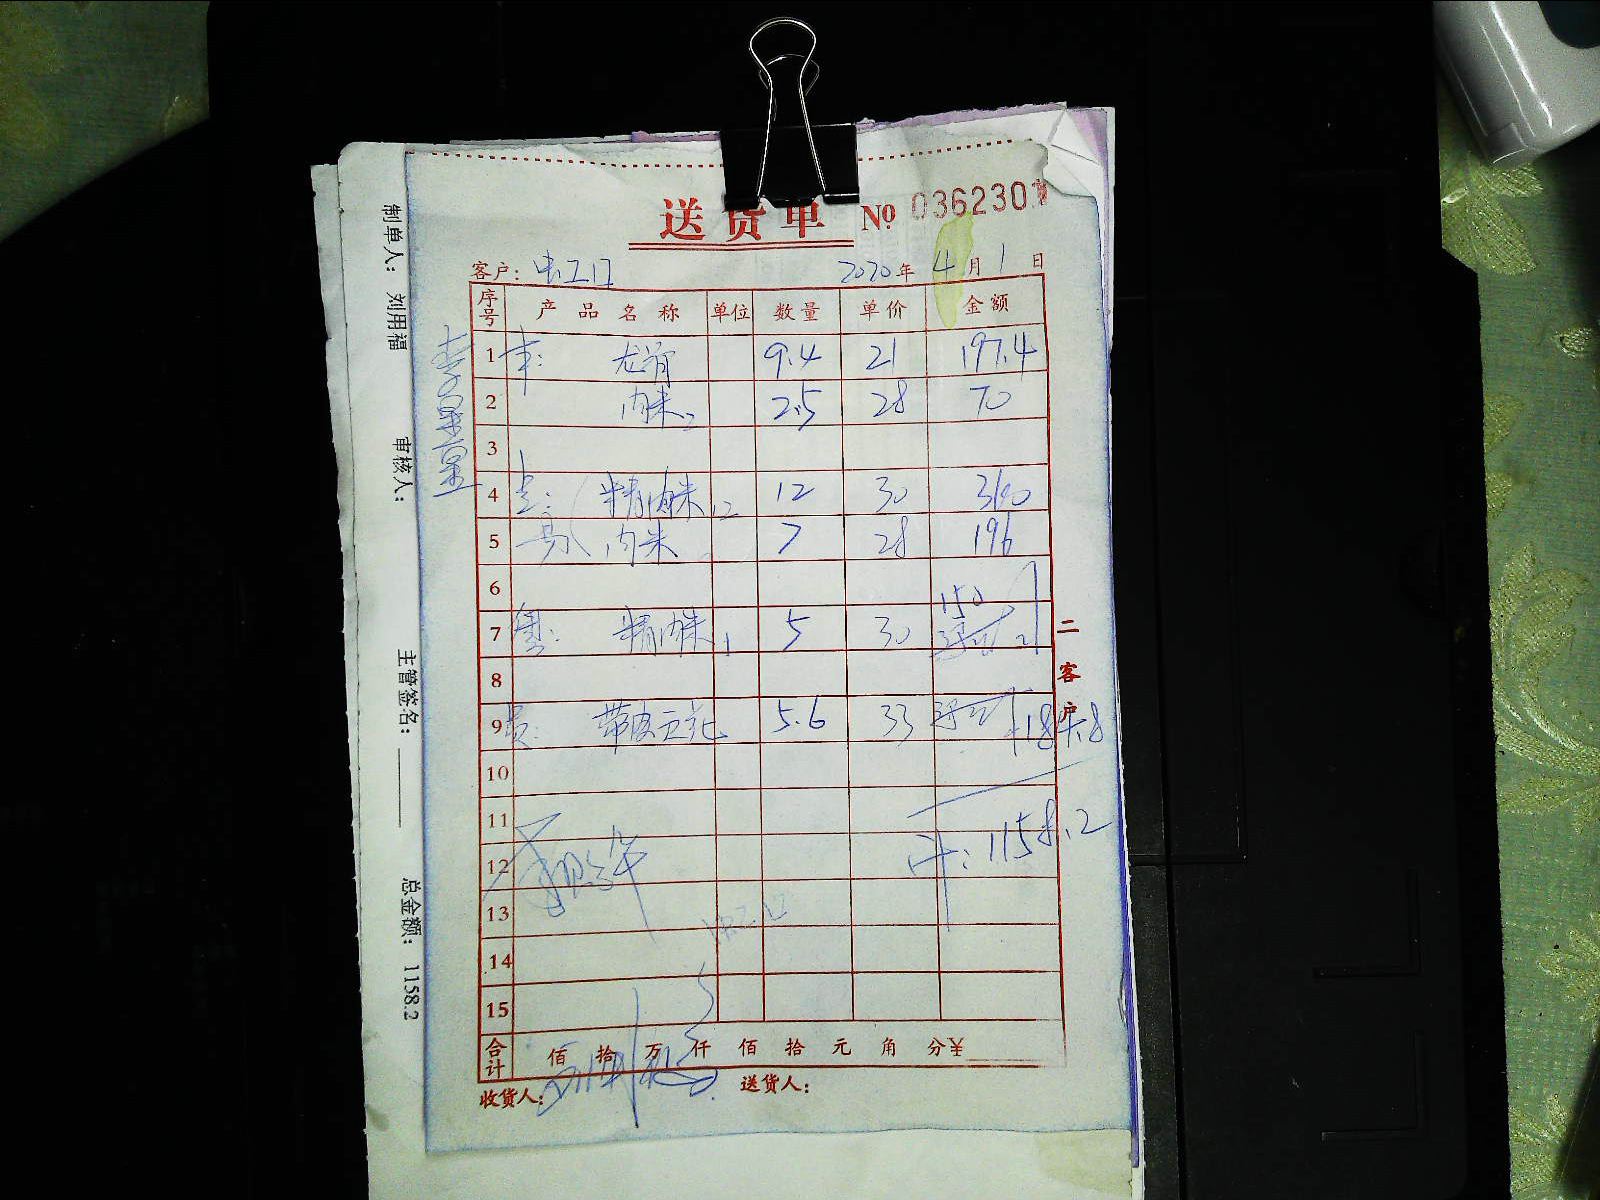 送货单 № 0362301
客户: 电工口 2020年 4月 1日
序号 产品名称 单位 数量 单价 金额
1 龙骨 9.4 21 197.4
2 肉米 2.5 28 70
3
4 精肉米 12 12 30 360
5 肉米 7 28 196
6
150
7 粤: 精肉米 1 5 30
8
9 带皮五花 5.6 33 184.8
10
11
12 计: 1158.2
13
14
15
合计 佰 拾 万 仟 佰 拾 元 角 分 ¥
收货人: 刘用福 送货人:
二客户
制单人: 刘用福 审核人: 主管签名: 总金额: 1158.2